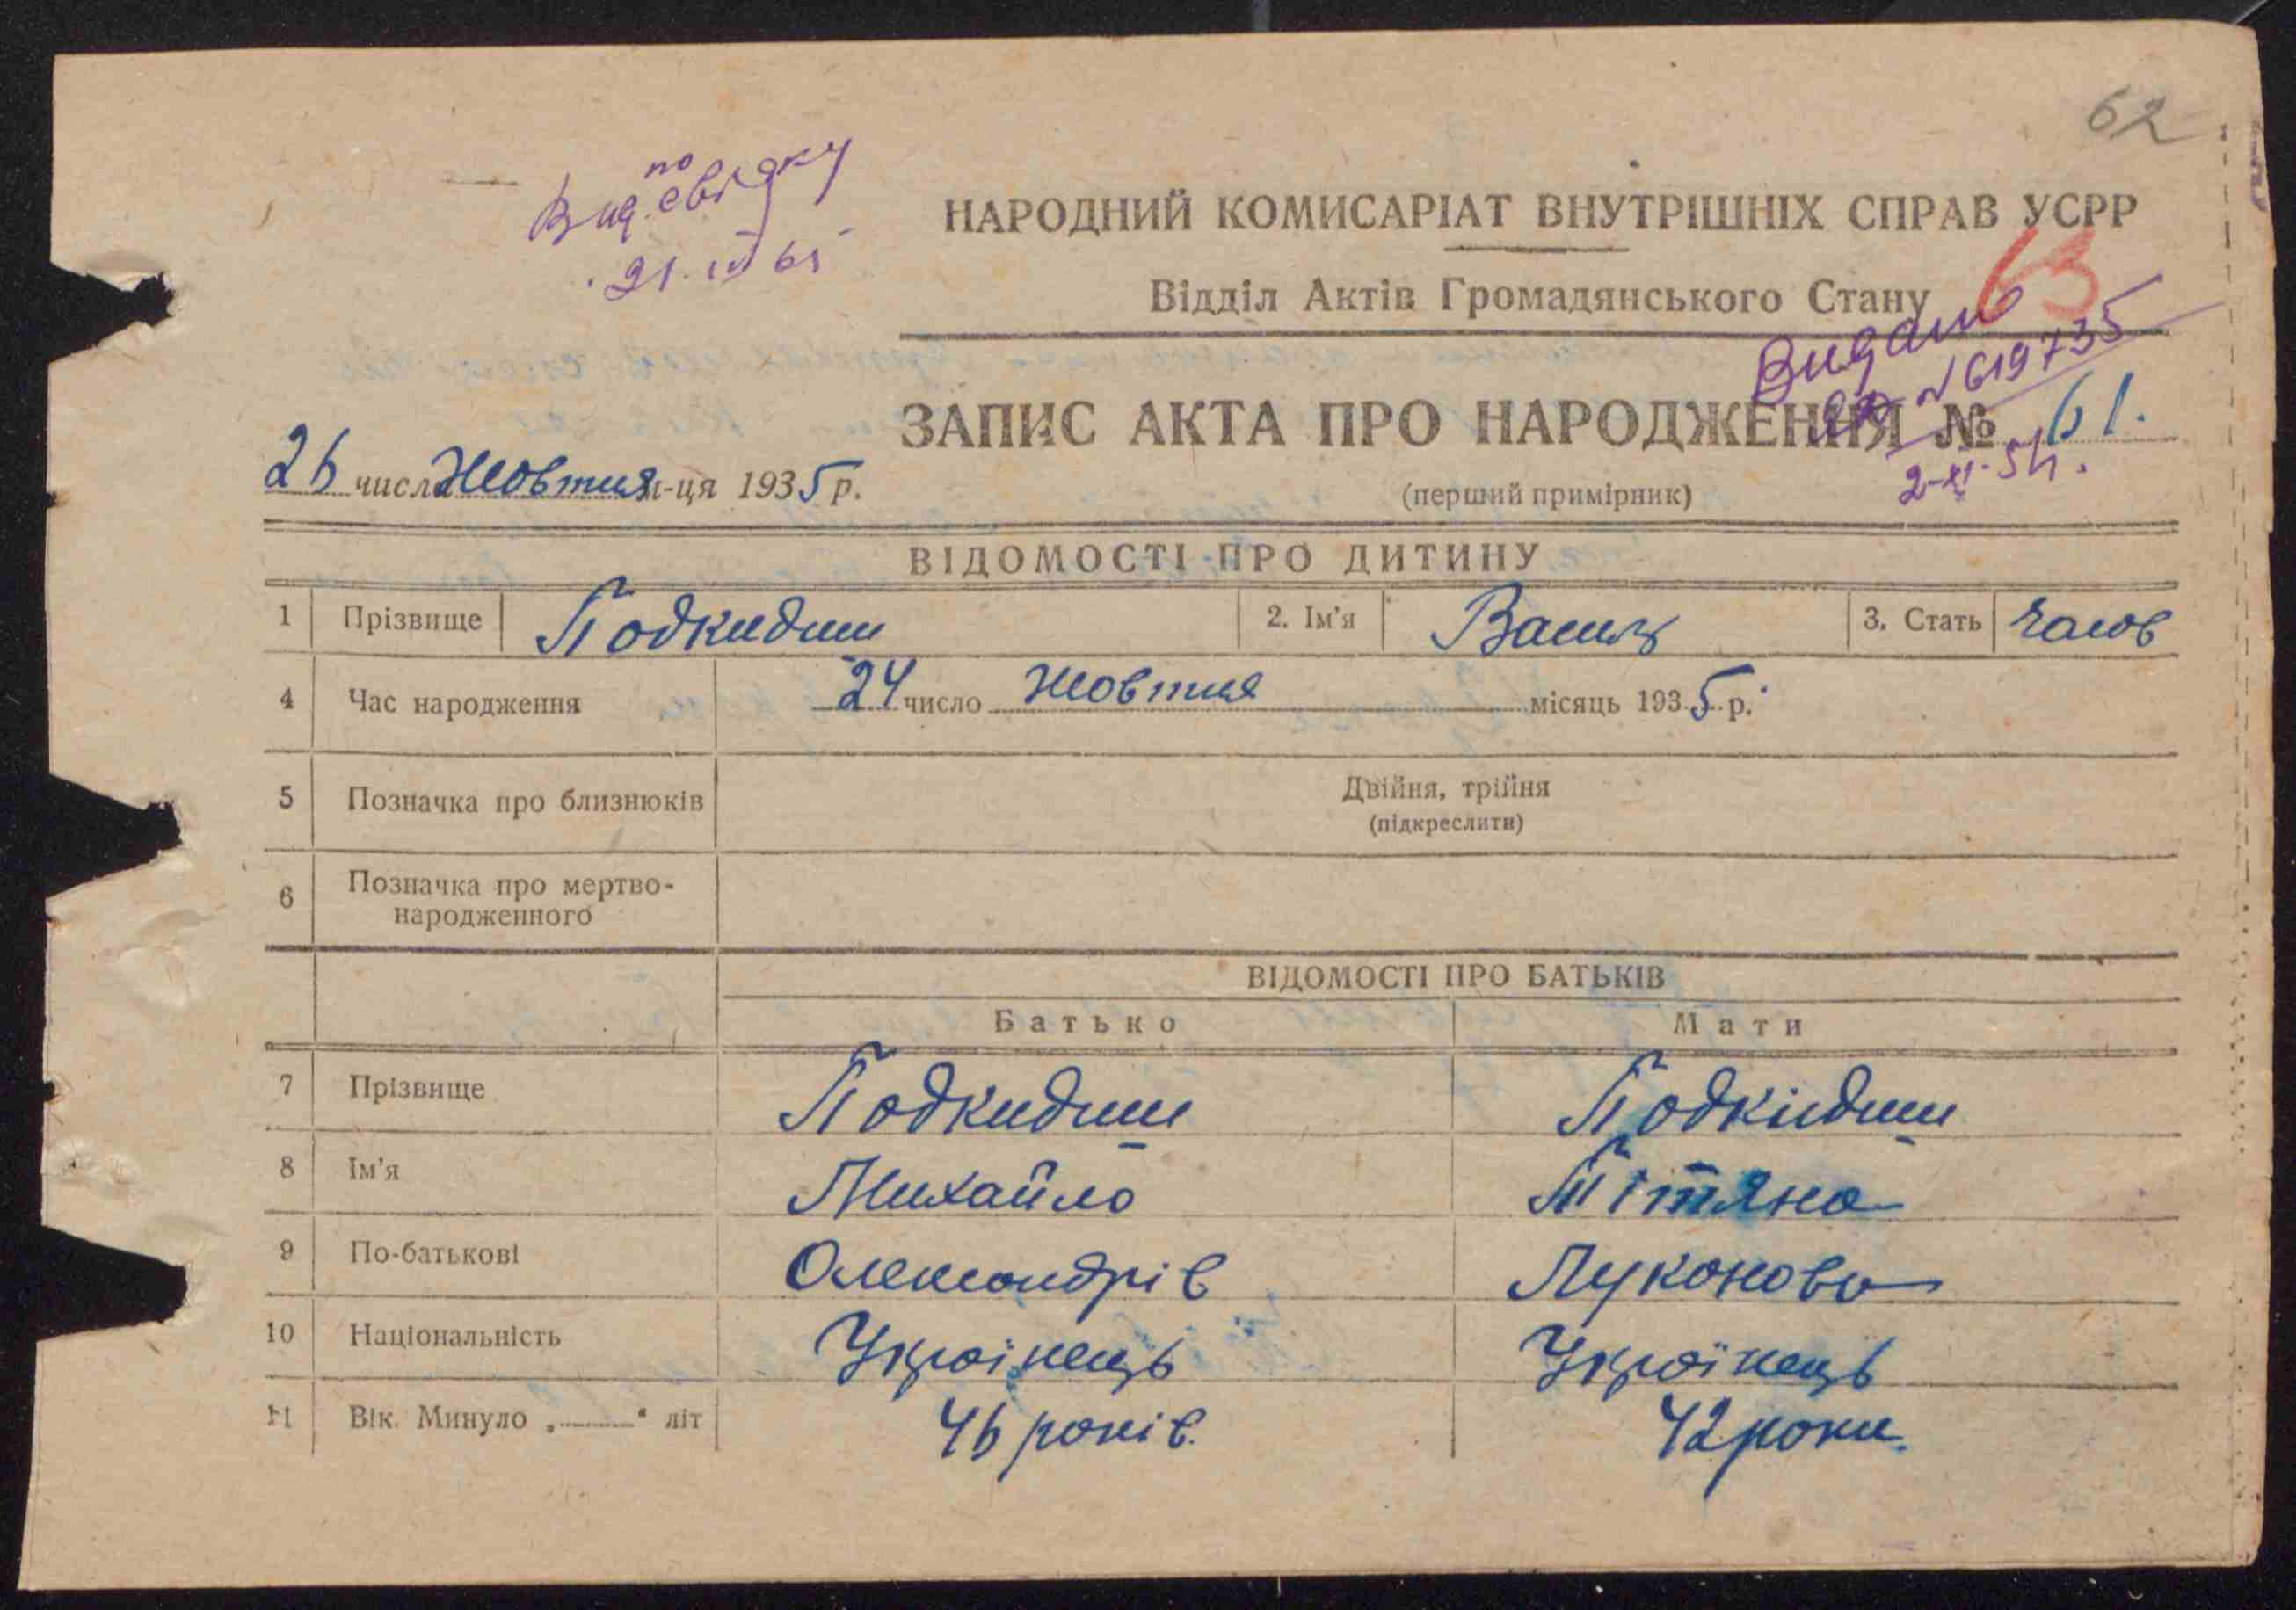 62
по
Вид. свідку
21.IV 65
НАРОДНИЙ КОМИСАРІАТ ВНУТРІШНІХ СПРАВ УСРР
63
Відділ Актів Громадянського Стану
Видано
№619735
ЗАПИС АКТА ПРО НАРОДЖЕННЯ № 61.
26 числа Жовтня м-ця 1935 р.
(перший примірник)
2-XI-54.
ВІДОМОСТІ ПРО ДИТИНУ
1 Прізвище Подкидиш 2. Ім'я Василь 3. Стать Чолов
4 Час народження 24 число Жовтня місяць 1935 р.
5 Позначка про близнюків Двійня, трійня
(підкреслити)
6 Позначка про мертво-
народженного
ВІДОМОСТІ ПРО БАТЬКІВ
Батько Мати
7 Прізвище Подкидиш Подкідиш
8 Ім'я Михайло Тітяна
9 По-батькові Олександрів Луконова
10 Національність Українець Українець
11 Вік. Минуло „ “ літ 46 років. 42 роки.